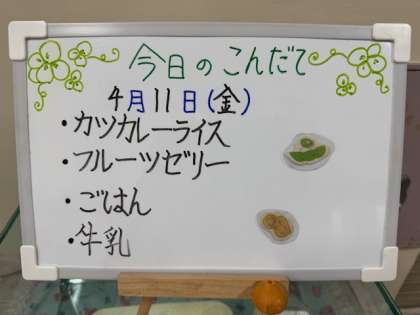 今日のこんだて
4月11日(金)
・カツカレーライス
・フルーツゼリー
・ごはん
・牛乳